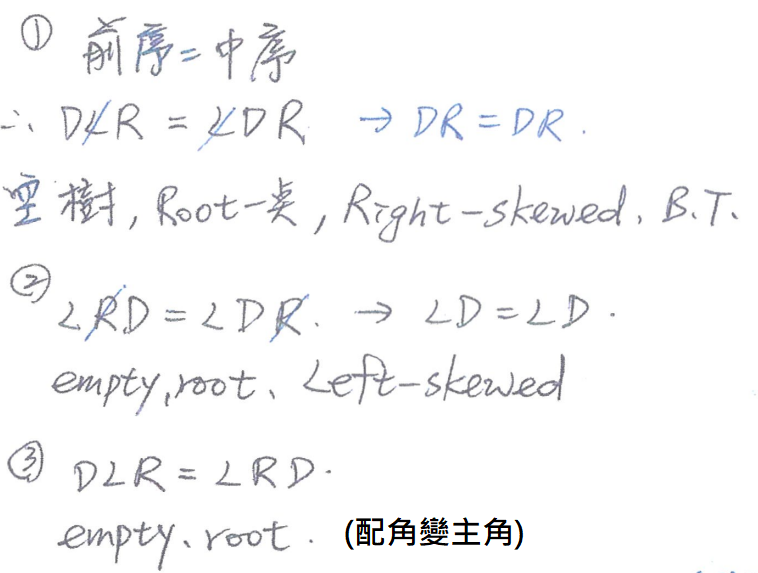 ① 前序=中序
∴ DLR = LDR → DR = DR.
空樹, Root一点, Right-skewed. B.T.
② LRD = LDR. → LD = LD.
empty, root、Left-skewed
③ DLR = LRD.
empty、root. (配角變主角)